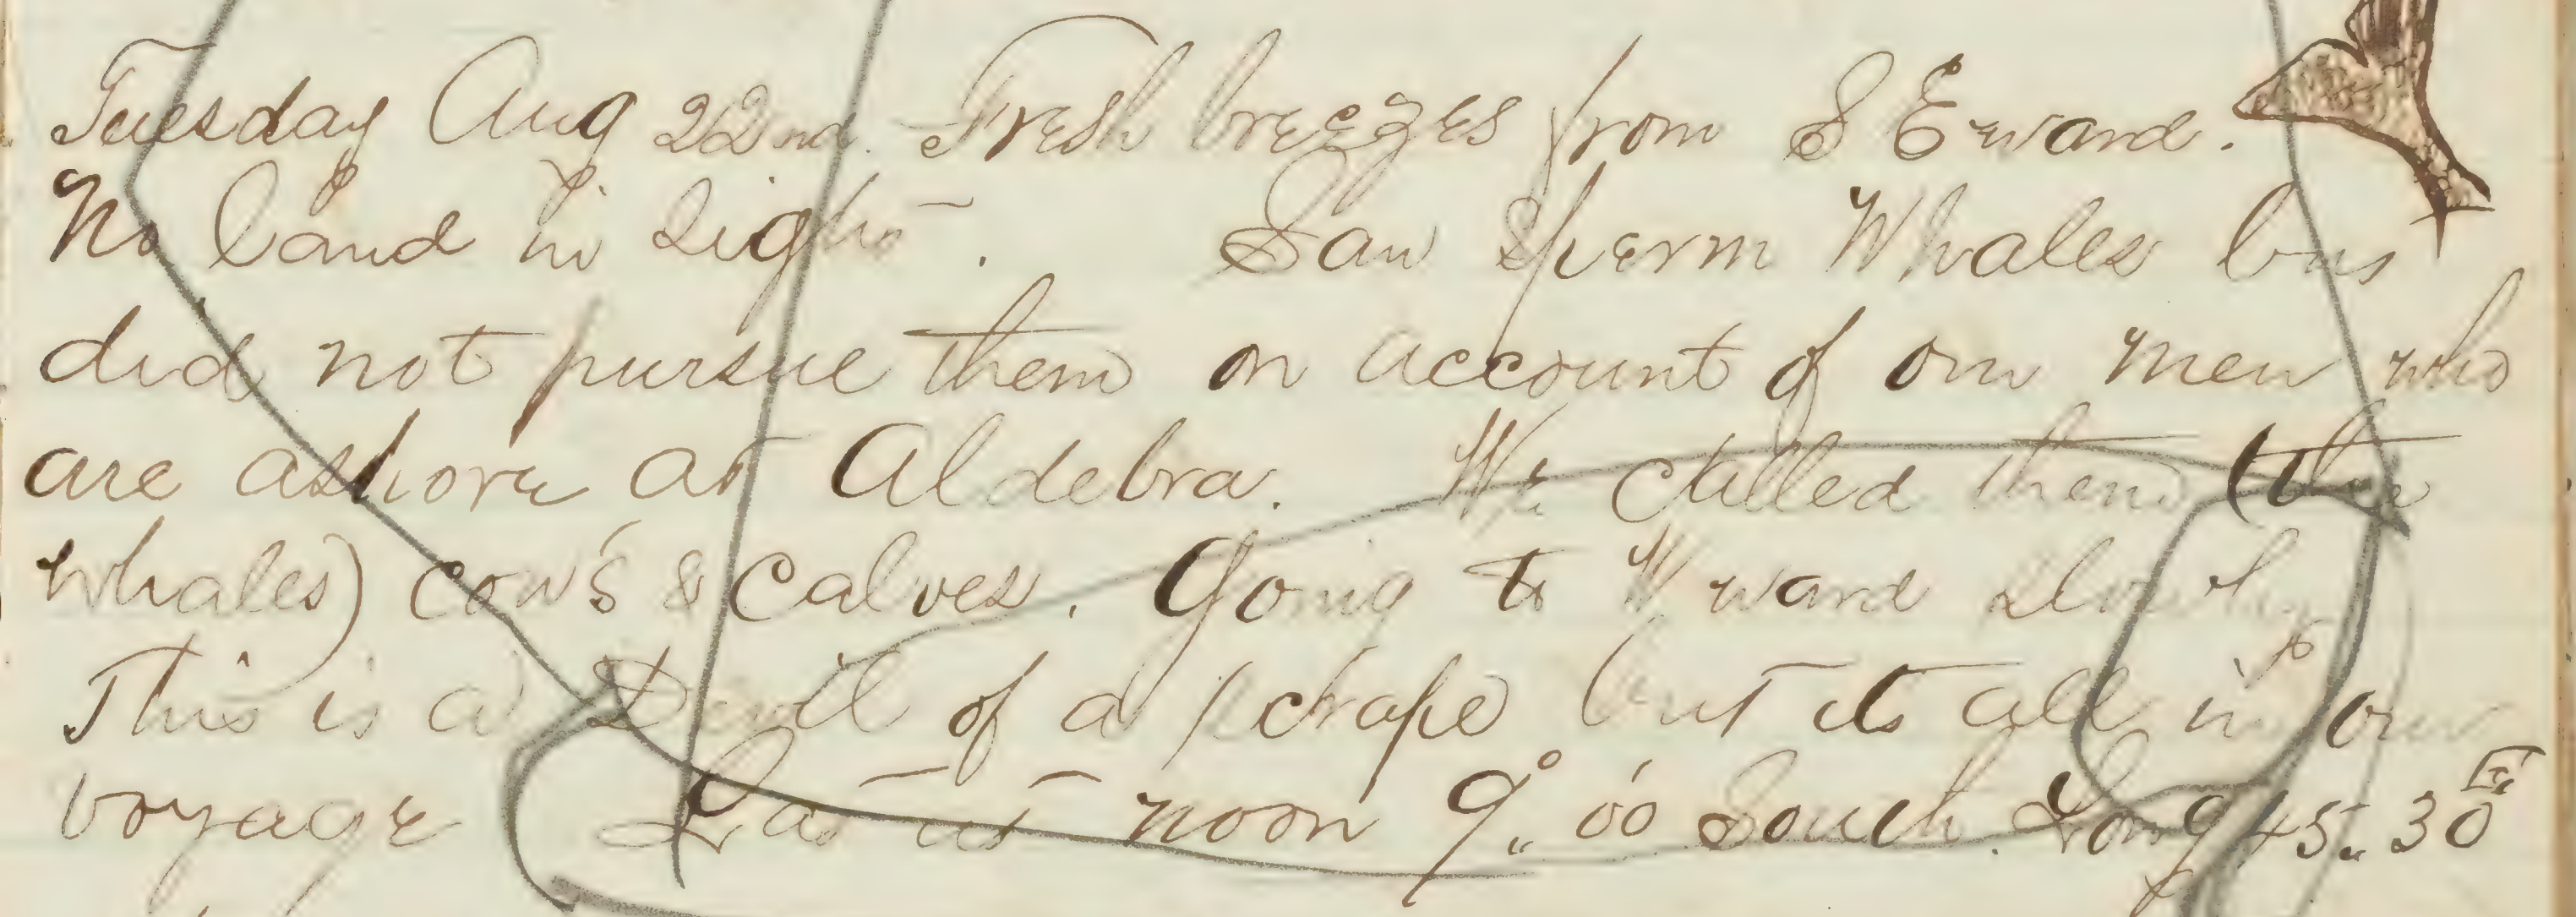 Tuesday Aug 22nd. Fresh breezes from S Eward.
No land in sight. Saw Sperm Whales but
did not pursue them on account of our men who
are ashore at Aldebra. We called them (the
whales) cow's & calves. Going to Wward slowly
This is a Devil of a scrape but its all in our
voyage Lat at noon 9°„ 00' South. Long 45„ 30 E